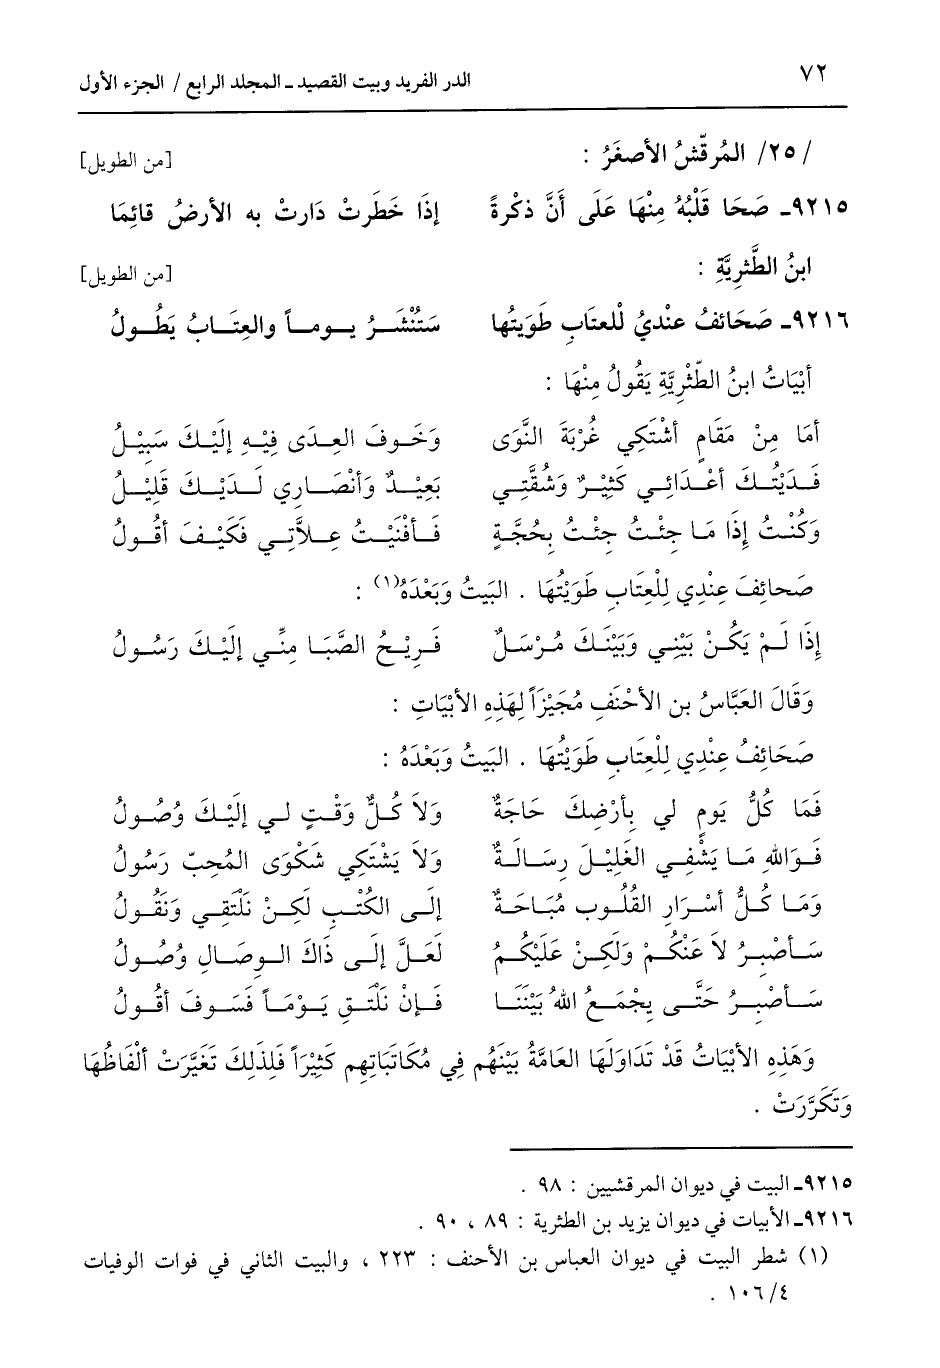 ٧٢ الدر الفريد وبيت القصيد ـ المجلد الرابع / الجزء الأول
/٢٥/ المُرقّشُ الأصغَرُ : [من الطويل]
٩٢١٥ـ صَحَا قَلْبُهُ مِنْهَا عَلَى أَنَّ ذكْرةً إذَا خَطَرتْ دَارتْ به الأرضُ قائِمَا
ابنُ الطَّثريَّةِ : [من الطويل]
٩٢١٦ـ صَحَائفُ عنْديُ للْعتابِ طَويتُها سَتُنْشَرُ يوماً والعِتَابُ يَطُولُ
أبْيَاتُ ابنُ الطّثْرِيَّةِ يَقُولُ مِنْهَا :
أمَا مِنْ مَقَامٍ أشْتَكِي غُرْبَةَ النَّوَى وَخَوفَ العِدَى فِيْهِ إلَيْكَ سَبِيْلُ
فَدَيْتُكَ أعْدَائِي كَثِيْرٌ وَشُقَّتِي بَعِيْدٌ وَأنْصَارِي لَدَيْكَ قَلِيْلُ
وَكُنْتُ إذَا مَا جِئْتُ جِئْتُ بِحُجَّةٍ فَأفْنَيْتُ عِلاَّتِي فَكَيْفَ أقُولُ
صَحائِفَ عِنْدِي لِلْعِتَابِ طَوَيْتُهَا . البَيتُ وَبَعْدَهُ(١) :
إذَا لَمْ يَكُنْ بَيْنِي وَبَيْنَكَ مُرْسَلٌ فَرِيْحُ الصَّبَا مِنِّي إلَيْكَ رَسُولُ
وَقَالَ العَبَّاسُ بن الأحْنَفِ مُجَيْزَاً لِهَذِهِ الأبْيَاتِ :
صَحَائِفُ عِنْدِي لِلْعِتَابِ طَوَيْتُهَا . البَيتُ وَبَعْدَهُ :
فَمَا كُلُّ يَومٍ لي بِأرْضِكَ حَاجَةٌ وَلاَ كُلُّ وَقْتٍ لي إلَيْكَ وُصُولُ
فَوَاللهِ مَا يَشْفِي الغَلِيْلَ رِسَالَةٌ وَلاَ يَشْتَكِي شَكْوَى المُحِبّ رَسُولُ
وَمَا كُلُّ أسْرَارِ القُلُوبِ مُبَاحَةٌ إلَى الكُتْبِ لَكِنْ نَلْتَقِي وَنَقُولُ
سَأصْبِرُ لاَ عَنْكُمْ وَلَكِنْ عَلَيْكُمُ لَعَلَّ إلَى ذَاكَ الوِصَالِ وُصُولُ
سَأصْبِرُ حَتَّى يجْمَعُ اللهُ بَيْنَنَا فَإنْ نَلْتَقِ يَوْمَاً فَسَوفَ أقُولُ
وَهَذِهِ الأبْيَاتُ قَدْ تَدَاوَلَهَا العَامَّةُ بَيْنَهُم فِي مُكَاتَبَاتِهِم كَثِيْرَاً فَلِذَلِكَ تَغَيَّرَتْ ألْفَاظُهَا
وَتَكَرَّرَتْ .
٩٢١٥ـ البيت في ديوان المرقشيين : ٩٨ .
٩٢١٦ـ الأبيات في ديوان يزيد بن الطثرية : ٨٩ ، ٩٠ .
(١) شطر البيت في ديوان العباس بن الأحنف : ٢٢٣ ، والبيت الثاني في فوات الوفيات
٤/ ١٠٦ .